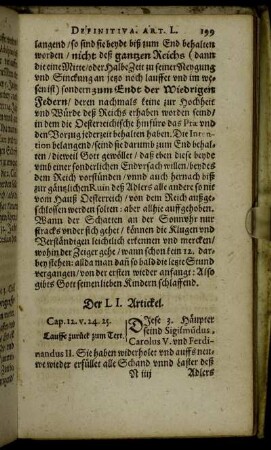 DEFINITIVA. ART. L. 199
langend / so sind sie beyde biß zum End behalten
worden / nicht deß gantzen Reichs (dann
die eine Mitte / oder Halbe Zeit zu seiner Neygung
und Sinckung an jetzo noch lauffet und im we-
sen ist) sondern zum Endt der Wiedrigen
Federn / deren nachmals keine zur Hochheit
und Würde deß Reichs erhaben worden send /
in dem die Oesterreichische hinfüro das Præ und
den Vorzug jederzeit behalten haben. Die Inten-
tion belangend / seind sie darumb zum End behal-
ten / dieweil Gott gewollet / daß eben diese beyde
umb einer sonderlichen Endursach willen / bendes
dem Reich vorstünden / unnd auch hernach biß
zur gäntzlichen Ruin deß Adlers alle andere so nit
vom Hauß Oesterreich / von dem Reich außge-
schlossen werden solten: aber allhie auffgehoben.
Wann der Schatten an der Sonnuhr nur
stracks under sich gehet / können die Klugen und
Verständigen leichtlich erkennen und mercken /
wohin der Zeiger gehe / wann schon kein 12. dar-
bey stehen: alldann daß so bald die letzte Stund
vergangen / von der ersten wieder anfangt: Also
gibts Gott seinen lieben Kindern schlaffend.
Der L I. Artickel.
Cap. 12. v. 24. 25.
Lauffe zurück zum Text.
DIese 3. Häupter
seind Sigismūdus,
Carolus V. und Ferdi-
nandus II. Sie haben widerholet und auffs neu-
we wieder erfüllet alle Schand unnd Laster deß
N iiij Adlers